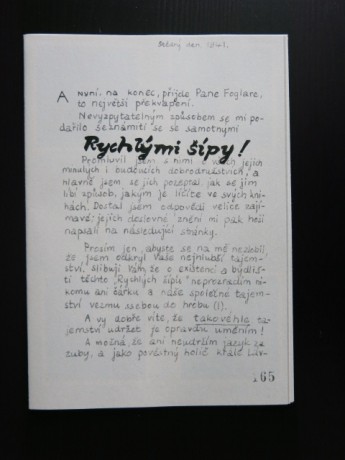 A nyní, na konec, přijde Pane Foglare,
to největší překvapení.
Nevyzpytatelným způsobem se mi po-
dařilo seznámiti se se samotnými
Rychlými šípy!
Promluvil jsem s nimi o všech jejich
minulých i budoucích dobrodružstvích, a
hlavně jsem se jich pozeptal, jak se jim
líbí způsob, jakým je líčíte ve svých kni-
hách. Dostal jsem odpovědi velice zají-
mavé; jejich doslovné znění mi pak hoši
napsali na následující stránky.
Prosím jen, abyste se na mě nezlobil,
že jsem odkryl Vaše nejhlubší tajem-
ství. Slibuji Vám, že o existenci a bydliš-
ti těchto "Rychlých šípů" neprozradím ni-
komu ani čárku a naše společné tajem-
ství vezmu ssebou do hrobu (!).
A vy dobře víte, že takovéhle ta-
jemství udržet je opravdu uměním!
A možná, že ani neudržím jazyk za
zuby, a jako pověstný holič krále Lav-
65